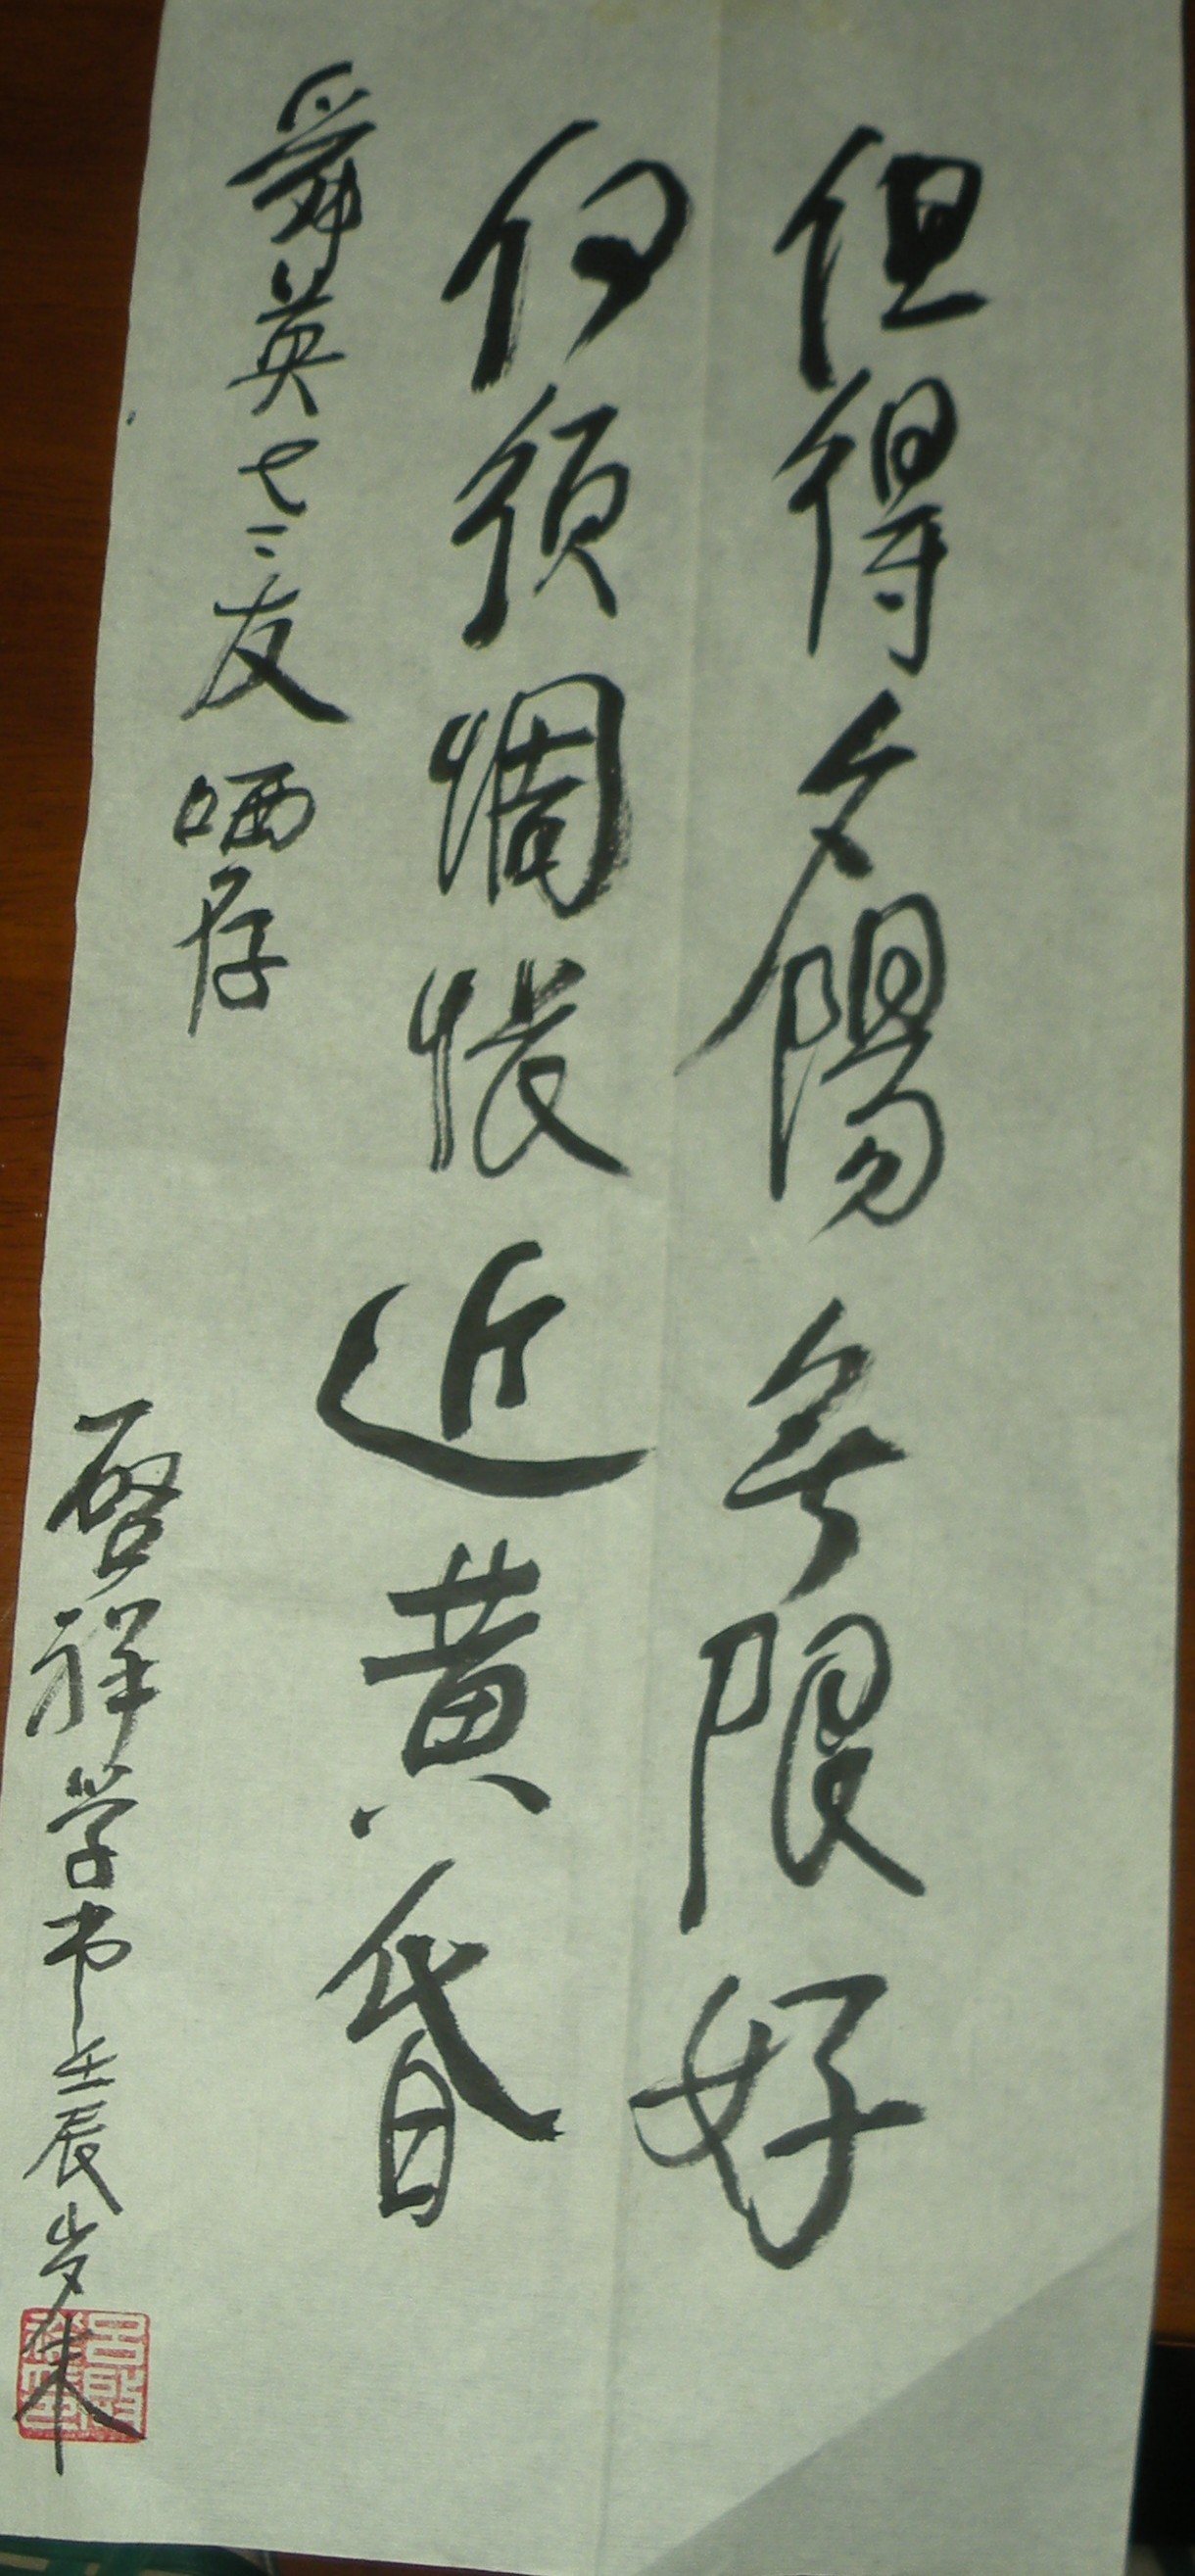 但得夕陽無限好
何須惆悵近黃昏
舜英七二友哂存
啓祥学书壬辰岁末
吕啟祥印